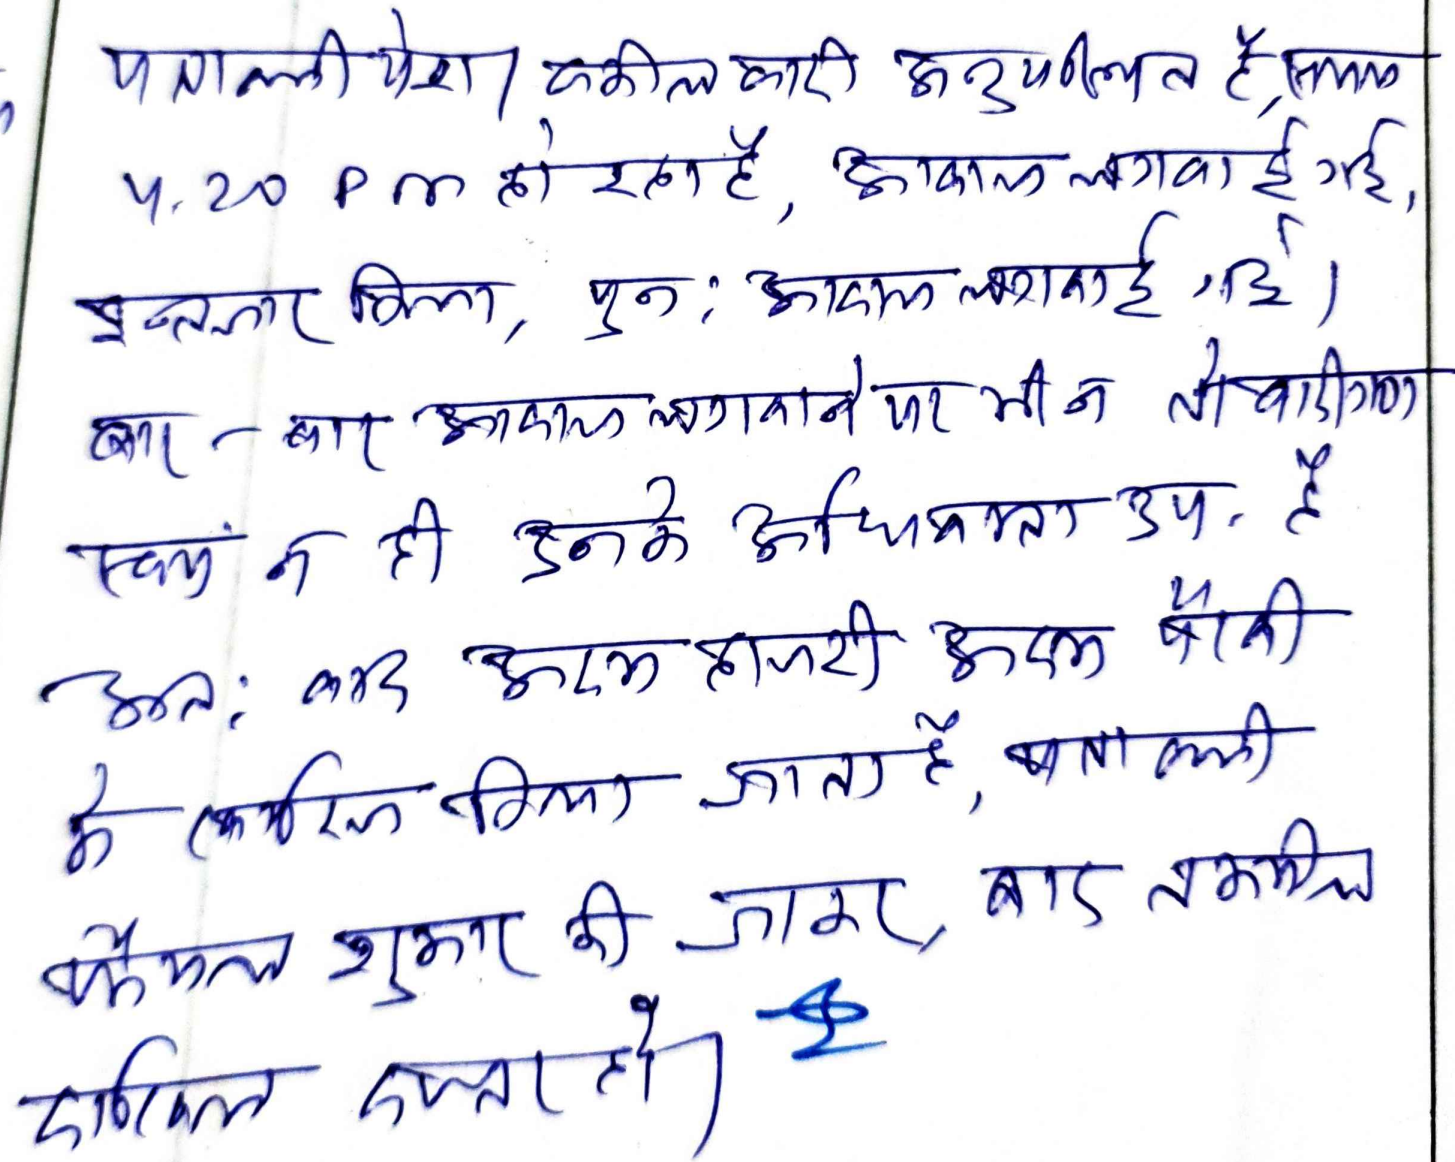 पत्रावली पेश। वकील वादी अनुपस्थित है, समय
4.20 PM हो रहा है, आवाज लगवाई गई,
इन्तजार किया, पुन: आवाज लगवाई गई।
बार - बार आवाज लगवाने पर भी न तो वादीगण
स्वयं न ही उनके अधिवक्ता उप. है
अत: वाद अदम हाजरी अदम पैरवी
मे खारिज किया जाता है, पत्रावली
फैसल शुमार की जाकर, बाद तकमील
दाखिल दफ्तर हो।